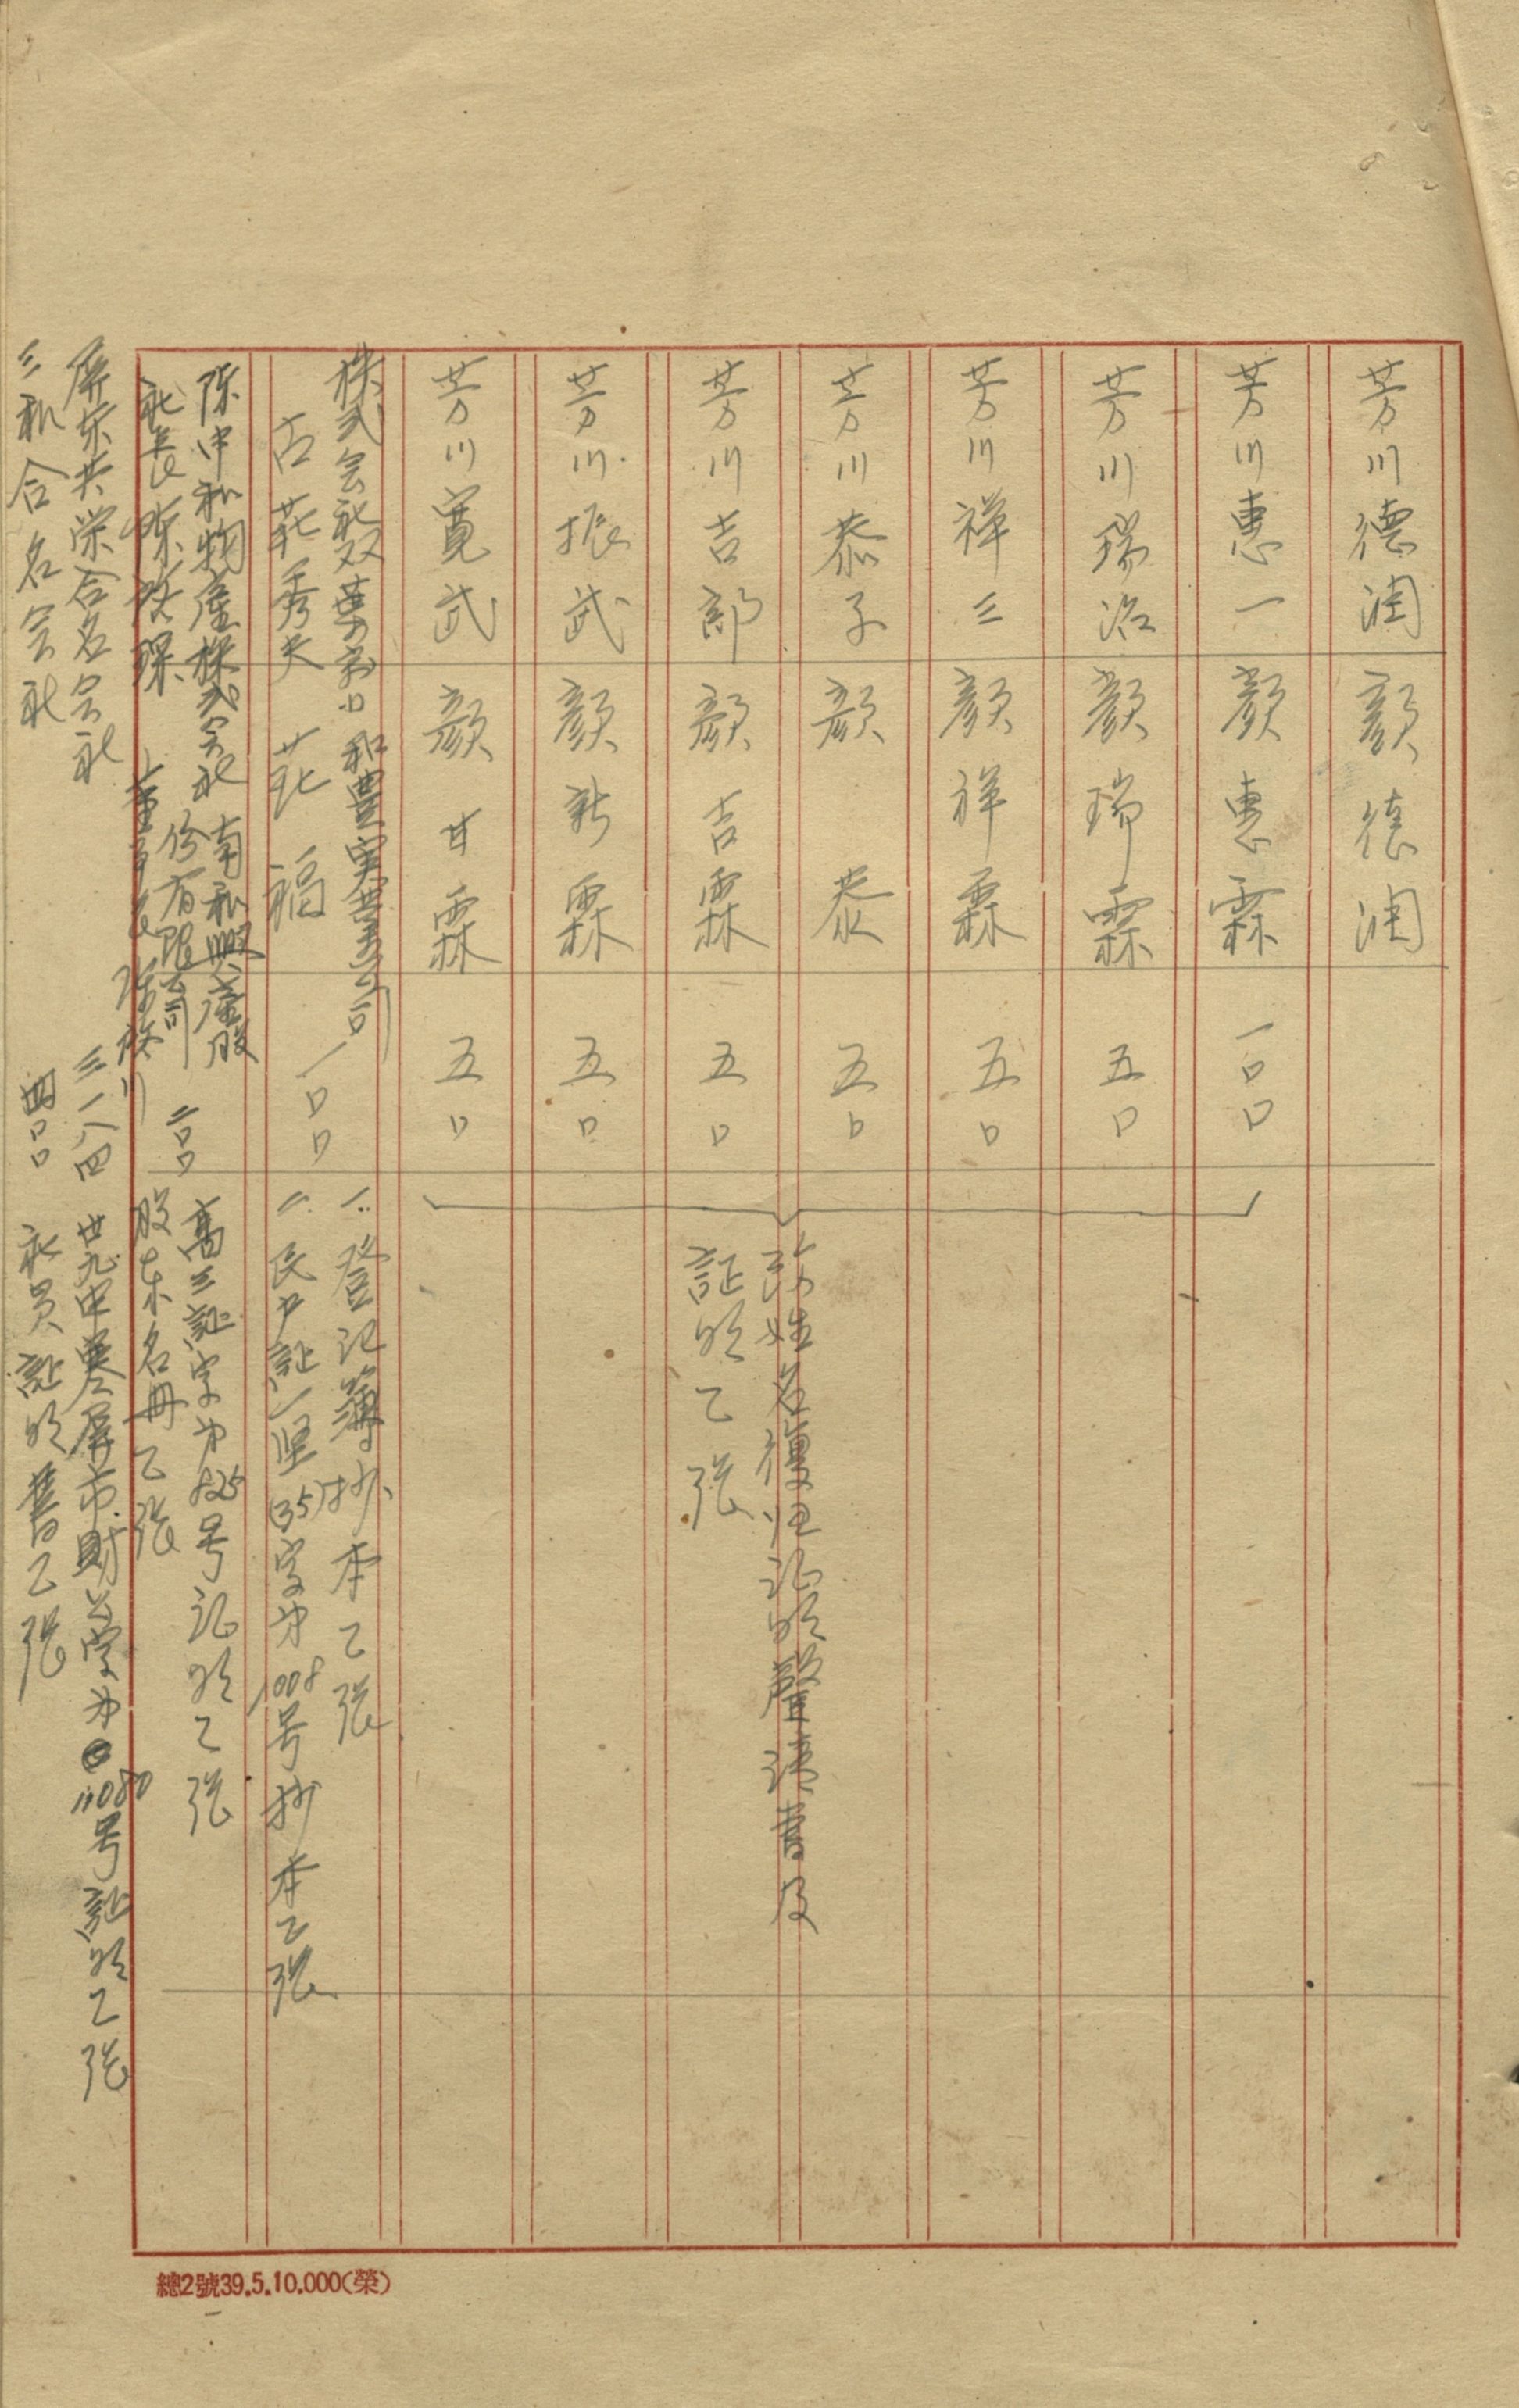 芳川德潤 顏德潤
芳川惠一 顏惠霖 一〇〇
芳川瑞治 顏瑞霖 五〇
芳川祥三 顏祥霖 五〇
芳川恭子 顏恭 五〇
芳川吉郎 顏吉霖 五〇
芳川振武 顏新霖 五〇
芳川寬武 顏甘霖 五〇
改姓名復归证明聲请書及
証明乙張
株式会社双葉商口 和豊実業公司
古莊秀夫 莊福 一〇〇
一.登记簿抄本乙張
二.民戶証坚(35)字第1008号抄本乙張
陈中和物產株式会社 南和興產股
份有限公司 二〇〇
社長陈啓琛 董事長陈啓川
高三証字第825号证明乙張
股东名冊乙張
屏东共荣合名会社 三一八四 卅九中屏市財公字第11080号証明乙張
三和合名会社 四〇〇 社員証明書乙張
總2號39.5.10.000(榮)